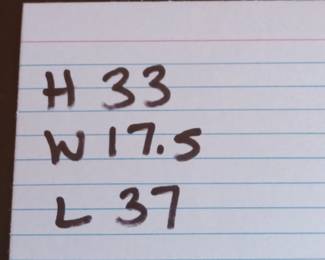 H 33
W 17.5
L 37